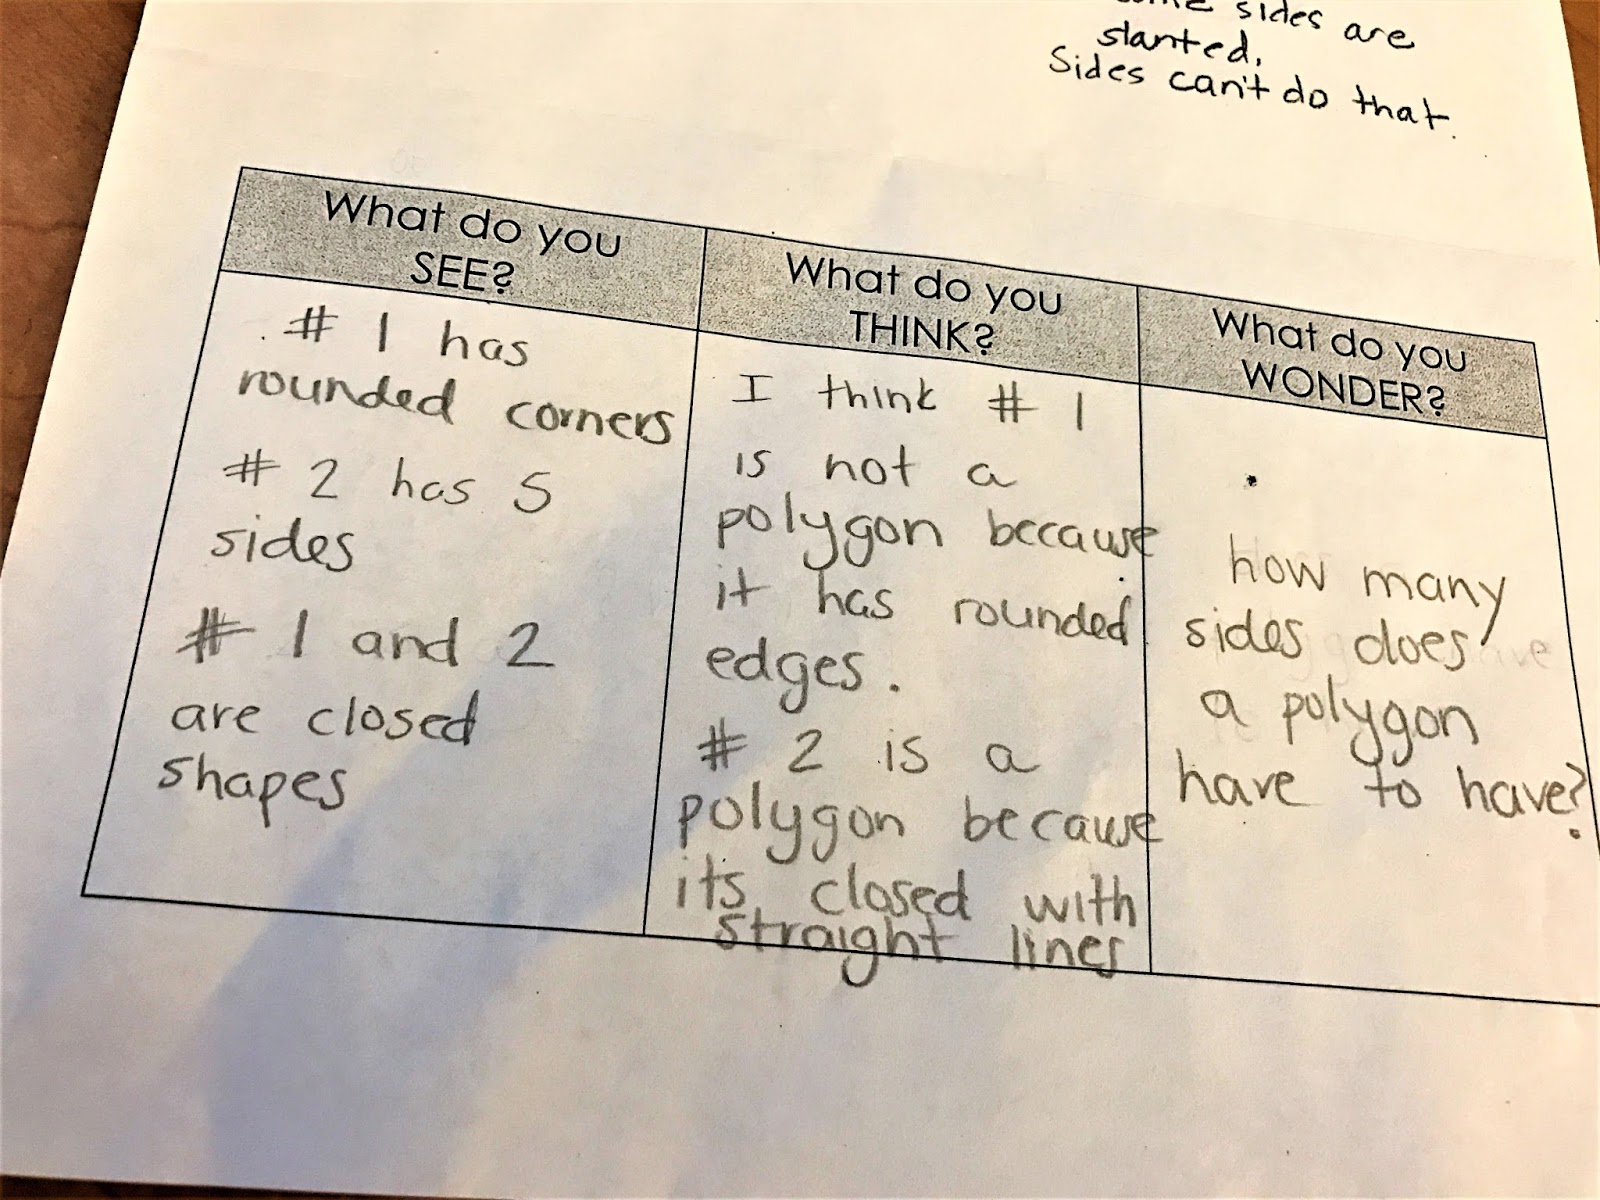 sides are
slanted.
Sides can't do that.
What do you
SEE?
# 1 has
rounded corners
# 2 has 5
sides
# 1 and 2
are closed
shapes
What do you
THINK?
I think # 1
is not a
polygon because
it has rounded
edges.
# 2 is a
polygon because
its closed with
straight lines
What do you
WONDER?
how many
sides does
a polygon
have to have?